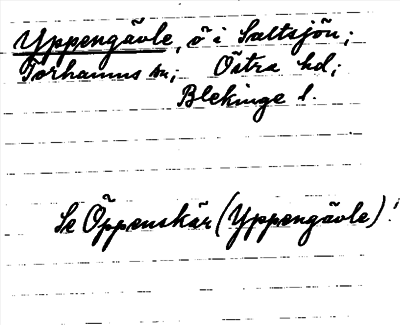 Yppengävle, ö i Saltsjön;
Torhamns sn; Östra hd;
Blekinge l.
Se Öppenskär (Yppengävle)!